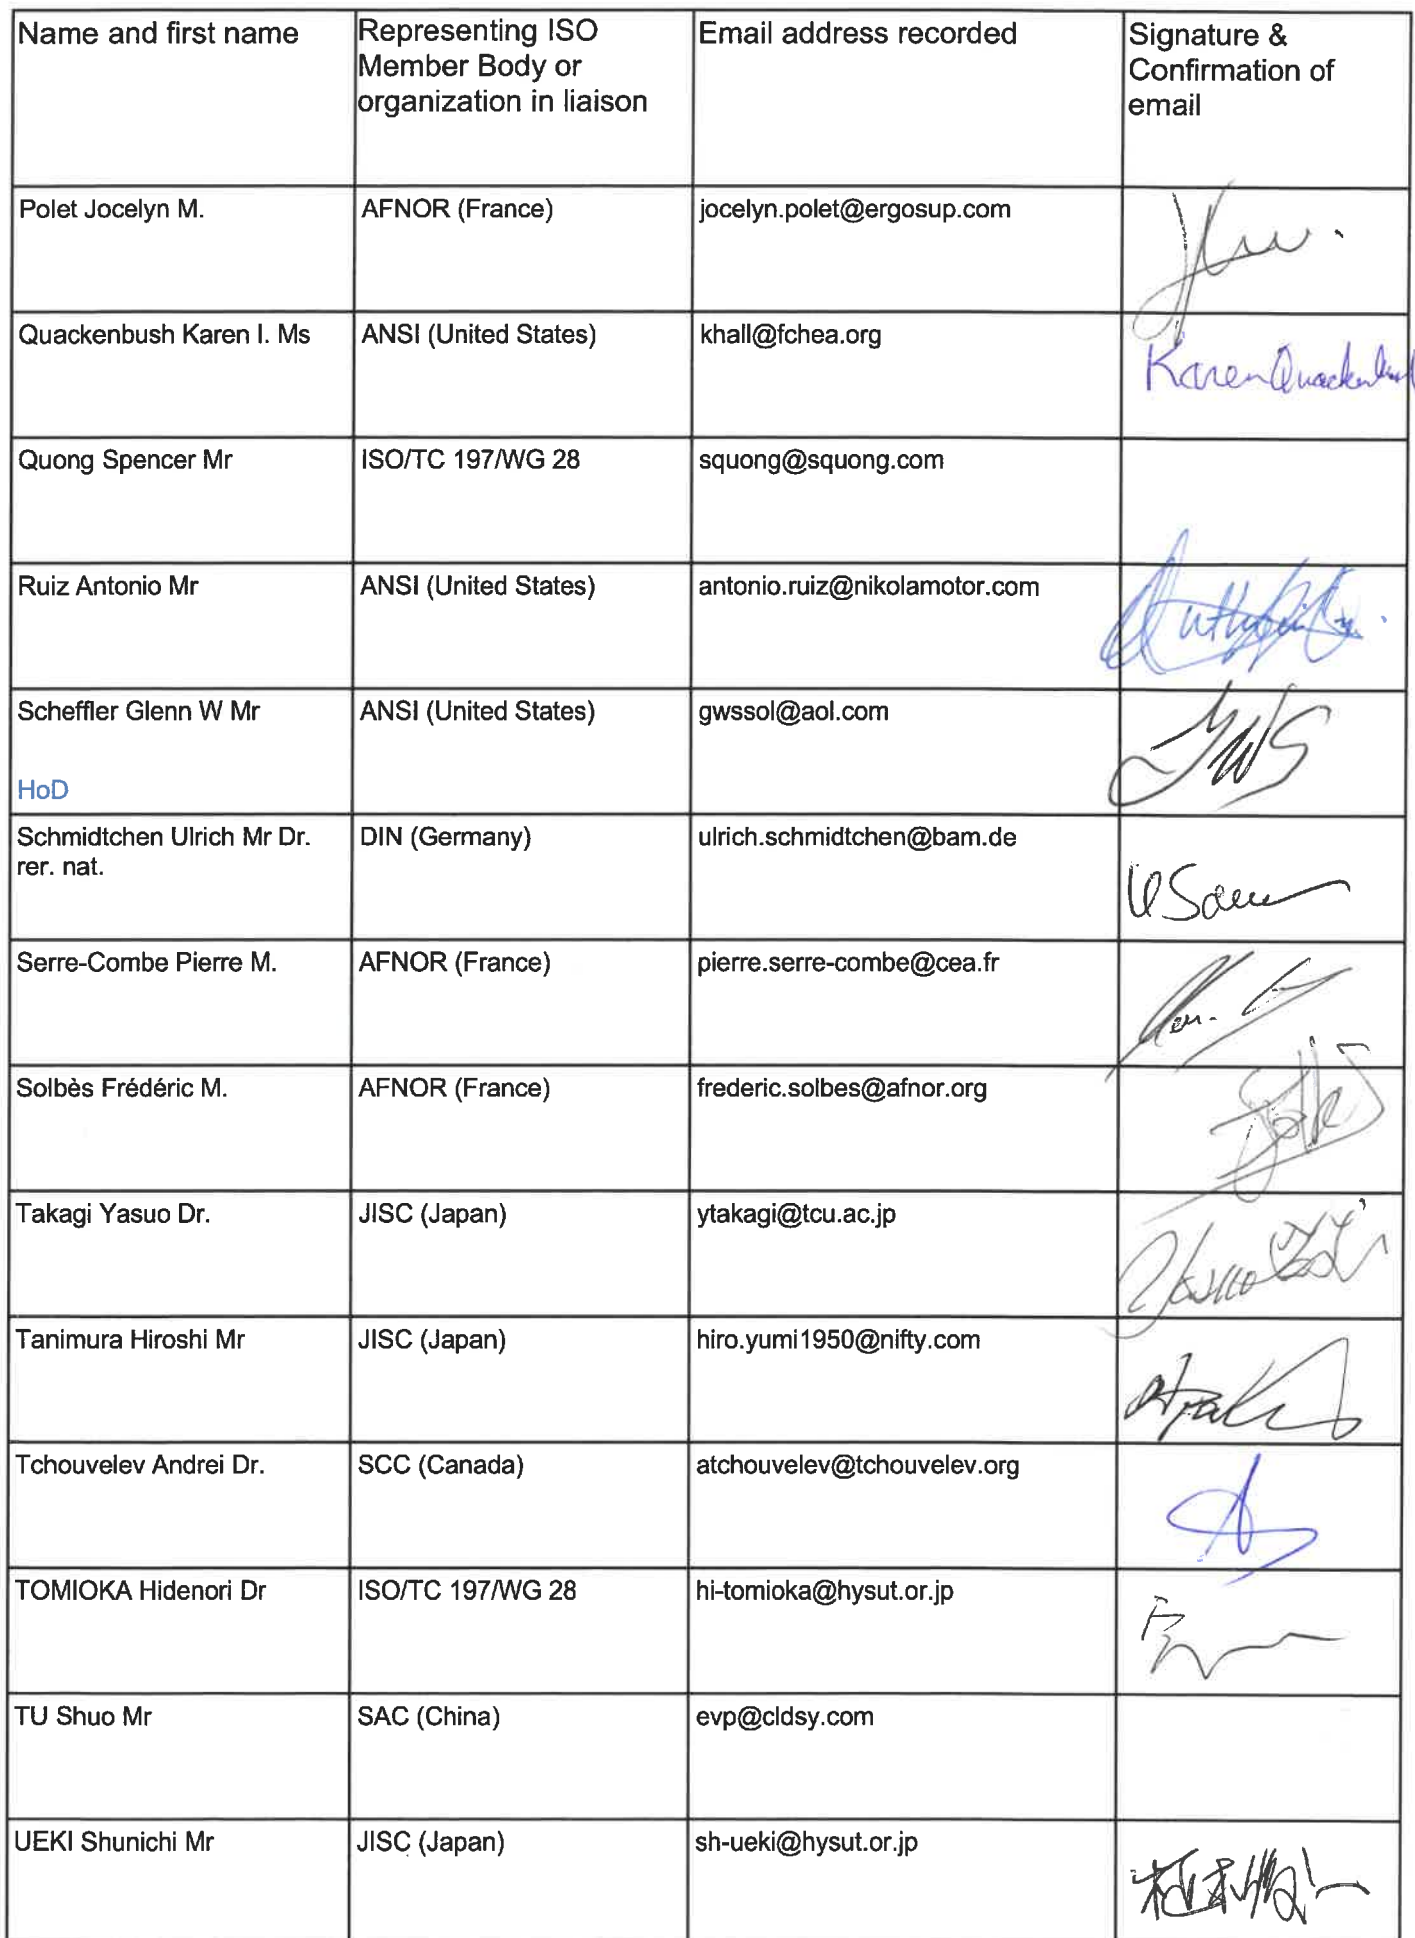 Name and first name
Representing ISO
Member Body or
organization in liaison
Email address recorded
Signature &
Confirmation of
email
Polet Jocelyn M.
AFNOR (France)
jocelyn.polet@ergosup.com
Quackenbush Karen I. Ms
ANSI (United States)
khall@fchea.org
Karen Quackenbush
Quong Spencer Mr
ISO/TC 197/WG 28
squong@squong.com
Ruiz Antonio Mr
ANSI (United States)
antonio.ruiz@nikolamotor.com
Scheffler Glenn W Mr
HoD
ANSI (United States)
gwssol@aol.com
Schmidtchen Ulrich Mr Dr.
rer. nat.
DIN (Germany)
ulrich.schmidtchen@bam.de
Serre-Combe Pierre M.
AFNOR (France)
pierre.serre-combe@cea.fr
Solbès Frédéric M.
AFNOR (France)
frederic.solbes@afnor.org
Takagi Yasuo Dr.
JISC (Japan)
ytakagi@tcu.ac.jp
Tanimura Hiroshi Mr
JISC (Japan)
hiro.yumi1950@nifty.com
Tchouvelev Andrei Dr.
SCC (Canada)
atchouvelev@tchouvelev.org
TOMIOKA Hidenori Dr
ISO/TC 197/WG 28
hi-tomioka@hysut.or.jp
TU Shuo Mr
SAC (China)
evp@cldsy.com
UEKI Shunichi Mr
JISC (Japan)
sh-ueki@hysut.or.jp